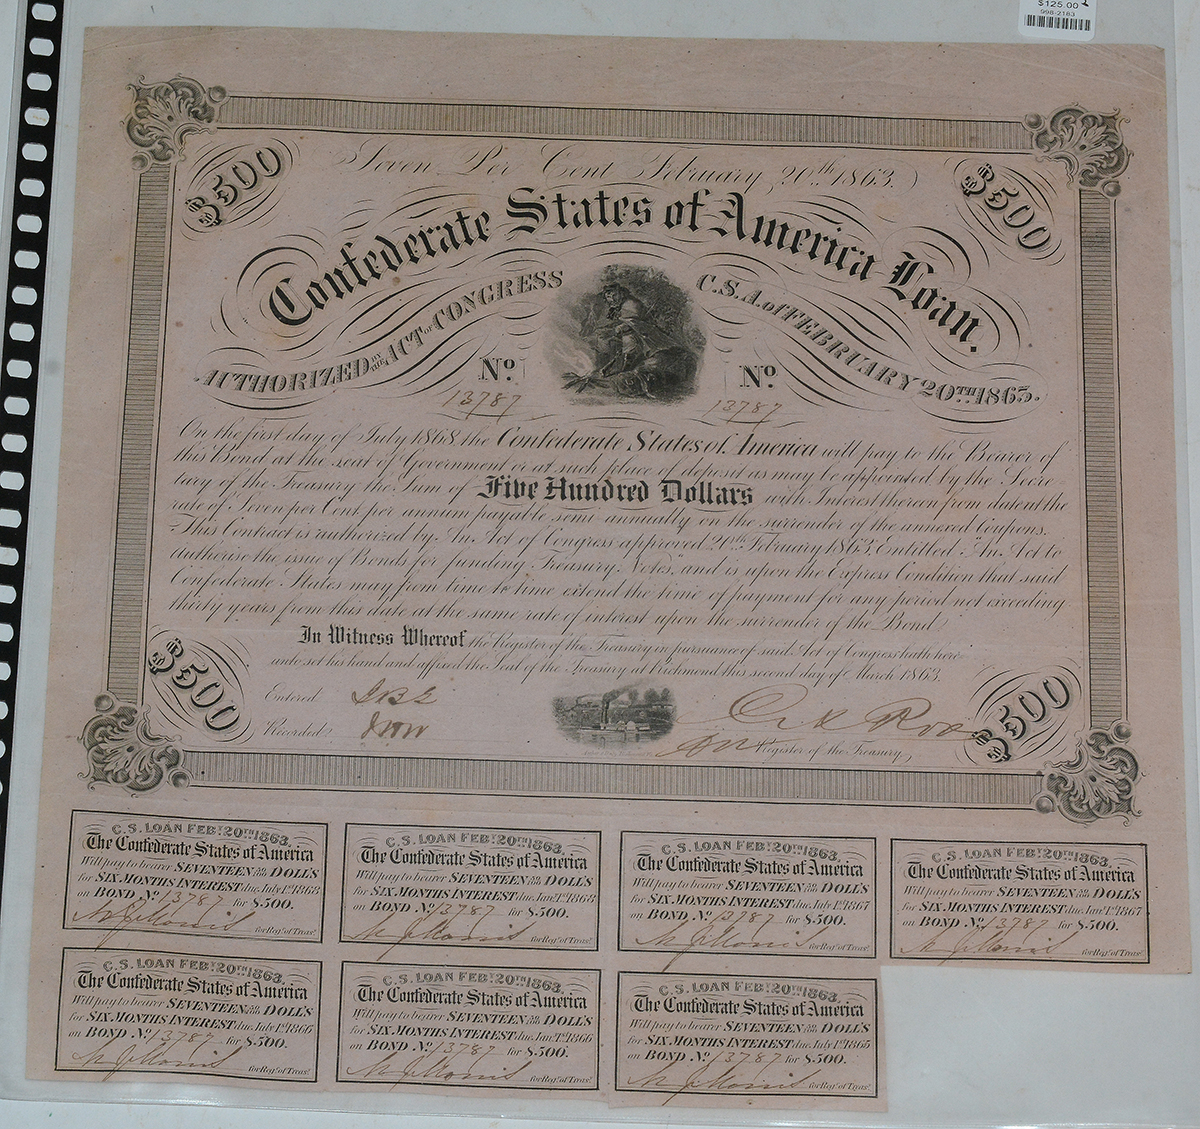 $125.00
998-2183
Seven Per Cent February 20th 1863.
$500
$500
Confederate States of America Loan.
AUTHORIZED BY THE ACT OF CONGRESS C.S.A. of FEBRUARY 20TH 1863.
No. No.
13787 13787
On the first day of July 1868 the Confederate States of America will pay to the Bearer of
this Bond, at the seat of Government or at such place of deposit as may be appointed by the Secre-
tary of the Treasury, the Sum of Five Hundred Dollars with Interest thereon from date at the
rate of Seven per Cent. per annum payable semi-annually on the surrender of the annexed Coupons.
This Contract is authorized by An Act of Congress approved 20th February 1863, Entitled "An Act to
authorise the issue of Bonds for funding Treasury Notes", and is upon the Express Condition that said
Confederate States may from time to time extend the time of payment for any period not exceeding
thirty years from this date at the same rate of interest upon the surrender of the Bond.
In Witness Whereof the Register of the Treasury in pursuance of said Act of Congress hath here-
unto set his hand and affixed the Seal of the Treasury at Richmond this second day of March 1863.
$500
$500
Entered
Recorded
Register of the Treasury.
C.S. LOAN FEBY. 20TH 1863.
The Confederate States of America
Will pay to bearer SEVENTEEN 50/100 DOLL'S
for SIX MONTHS INTEREST due July 1st 1868
on BOND No. 13787 for $.500.
for Regr. of Treasy.
C.S. LOAN FEBY. 20TH 1863.
The Confederate States of America
Will pay to bearer SEVENTEEN 50/100 DOLL'S
for SIX MONTHS INTEREST due Jany. 1st 1868
on BOND No. 13787 for $.500.
for Regr. of Treasy.
C.S. LOAN FEBY. 20TH 1863.
The Confederate States of America
Will pay to bearer SEVENTEEN 50/100 DOLL'S
for SIX MONTHS INTEREST due July 1st 1867
on BOND No. 13787 for $.500.
for Regr. of Treasy.
C.S. LOAN FEBY. 20TH 1863.
The Confederate States of America
Will pay to bearer SEVENTEEN 50/100 DOLL'S
for SIX MONTHS INTEREST due Jany. 1st 1867
on BOND No. 13787 for $.500.
for Regr. of Treasy.
C.S. LOAN FEBY. 20TH 1863.
The Confederate States of America
Will pay to bearer SEVENTEEN 50/100 DOLL'S
for SIX MONTHS INTEREST due July 1st 1866
on BOND No. 13787 for $.500.
for Regr. of Treasy.
C.S. LOAN FEBY. 20TH 1863.
The Confederate States of America
Will pay to bearer SEVENTEEN 50/100 DOLL'S
for SIX MONTHS INTEREST due Jany. 1st 1866
on BOND No. 13787 for $.500.
for Regr. of Treasy.
C.S. LOAN FEBY. 20TH 1863.
The Confederate States of America
Will pay to bearer SEVENTEEN 50/100 DOLL'S
for SIX MONTHS INTEREST due July 1st 1865
on BOND No. 13787 for $.500.
for Regr. of Treasy.